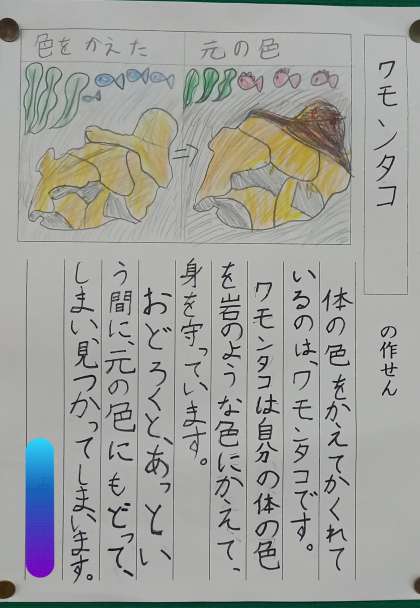 ワモンタコ
の作せん
色をかえた
元の色
体の色をかえてかくれて
いるのは、ワモンタコです。
ワモンタコは自分の体の色
を岩のような色にかえて、
身を守っています。
おどろくと、あっとい
う間に、元の色にもどって、
しまい、見つかってしまいます。